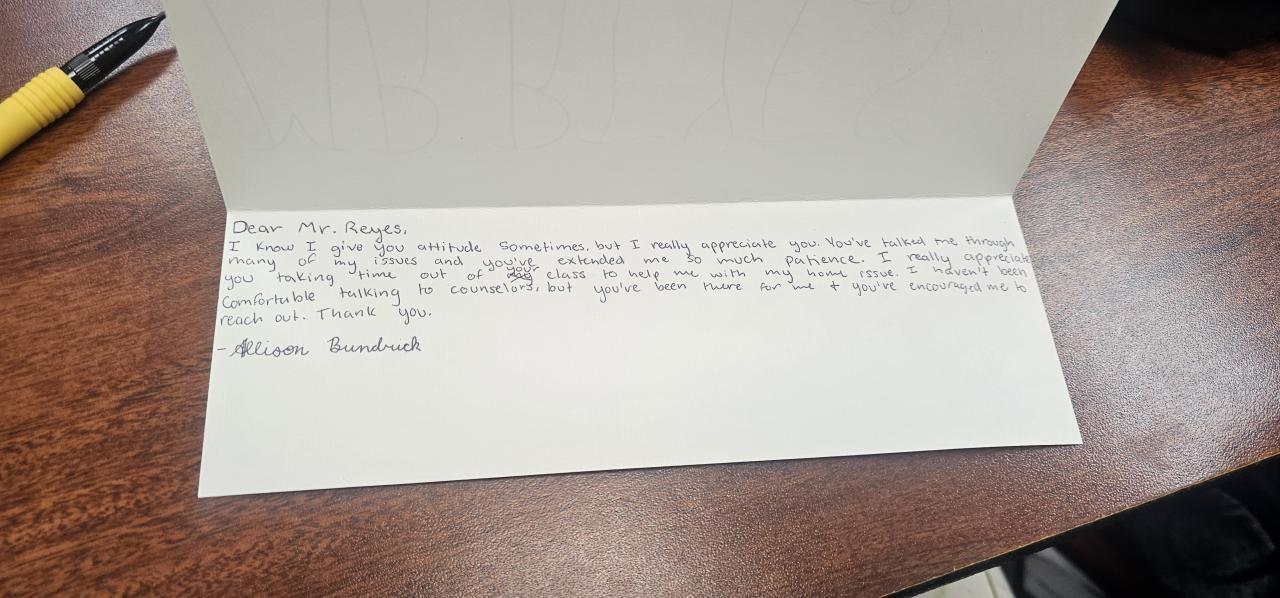 Dear Mr. Reyes,
I know I give you attitude sometimes, but I really appreciate you. You've talked me through
many of my issues and you've extended me so much patience. I really appreciate
you taking time out of your class to help me with my home issue. I haven't been
comfortable talking to counselors, but you've been there for me + you've encouraged me to
reach out. Thank you.
-Allison Bundrick